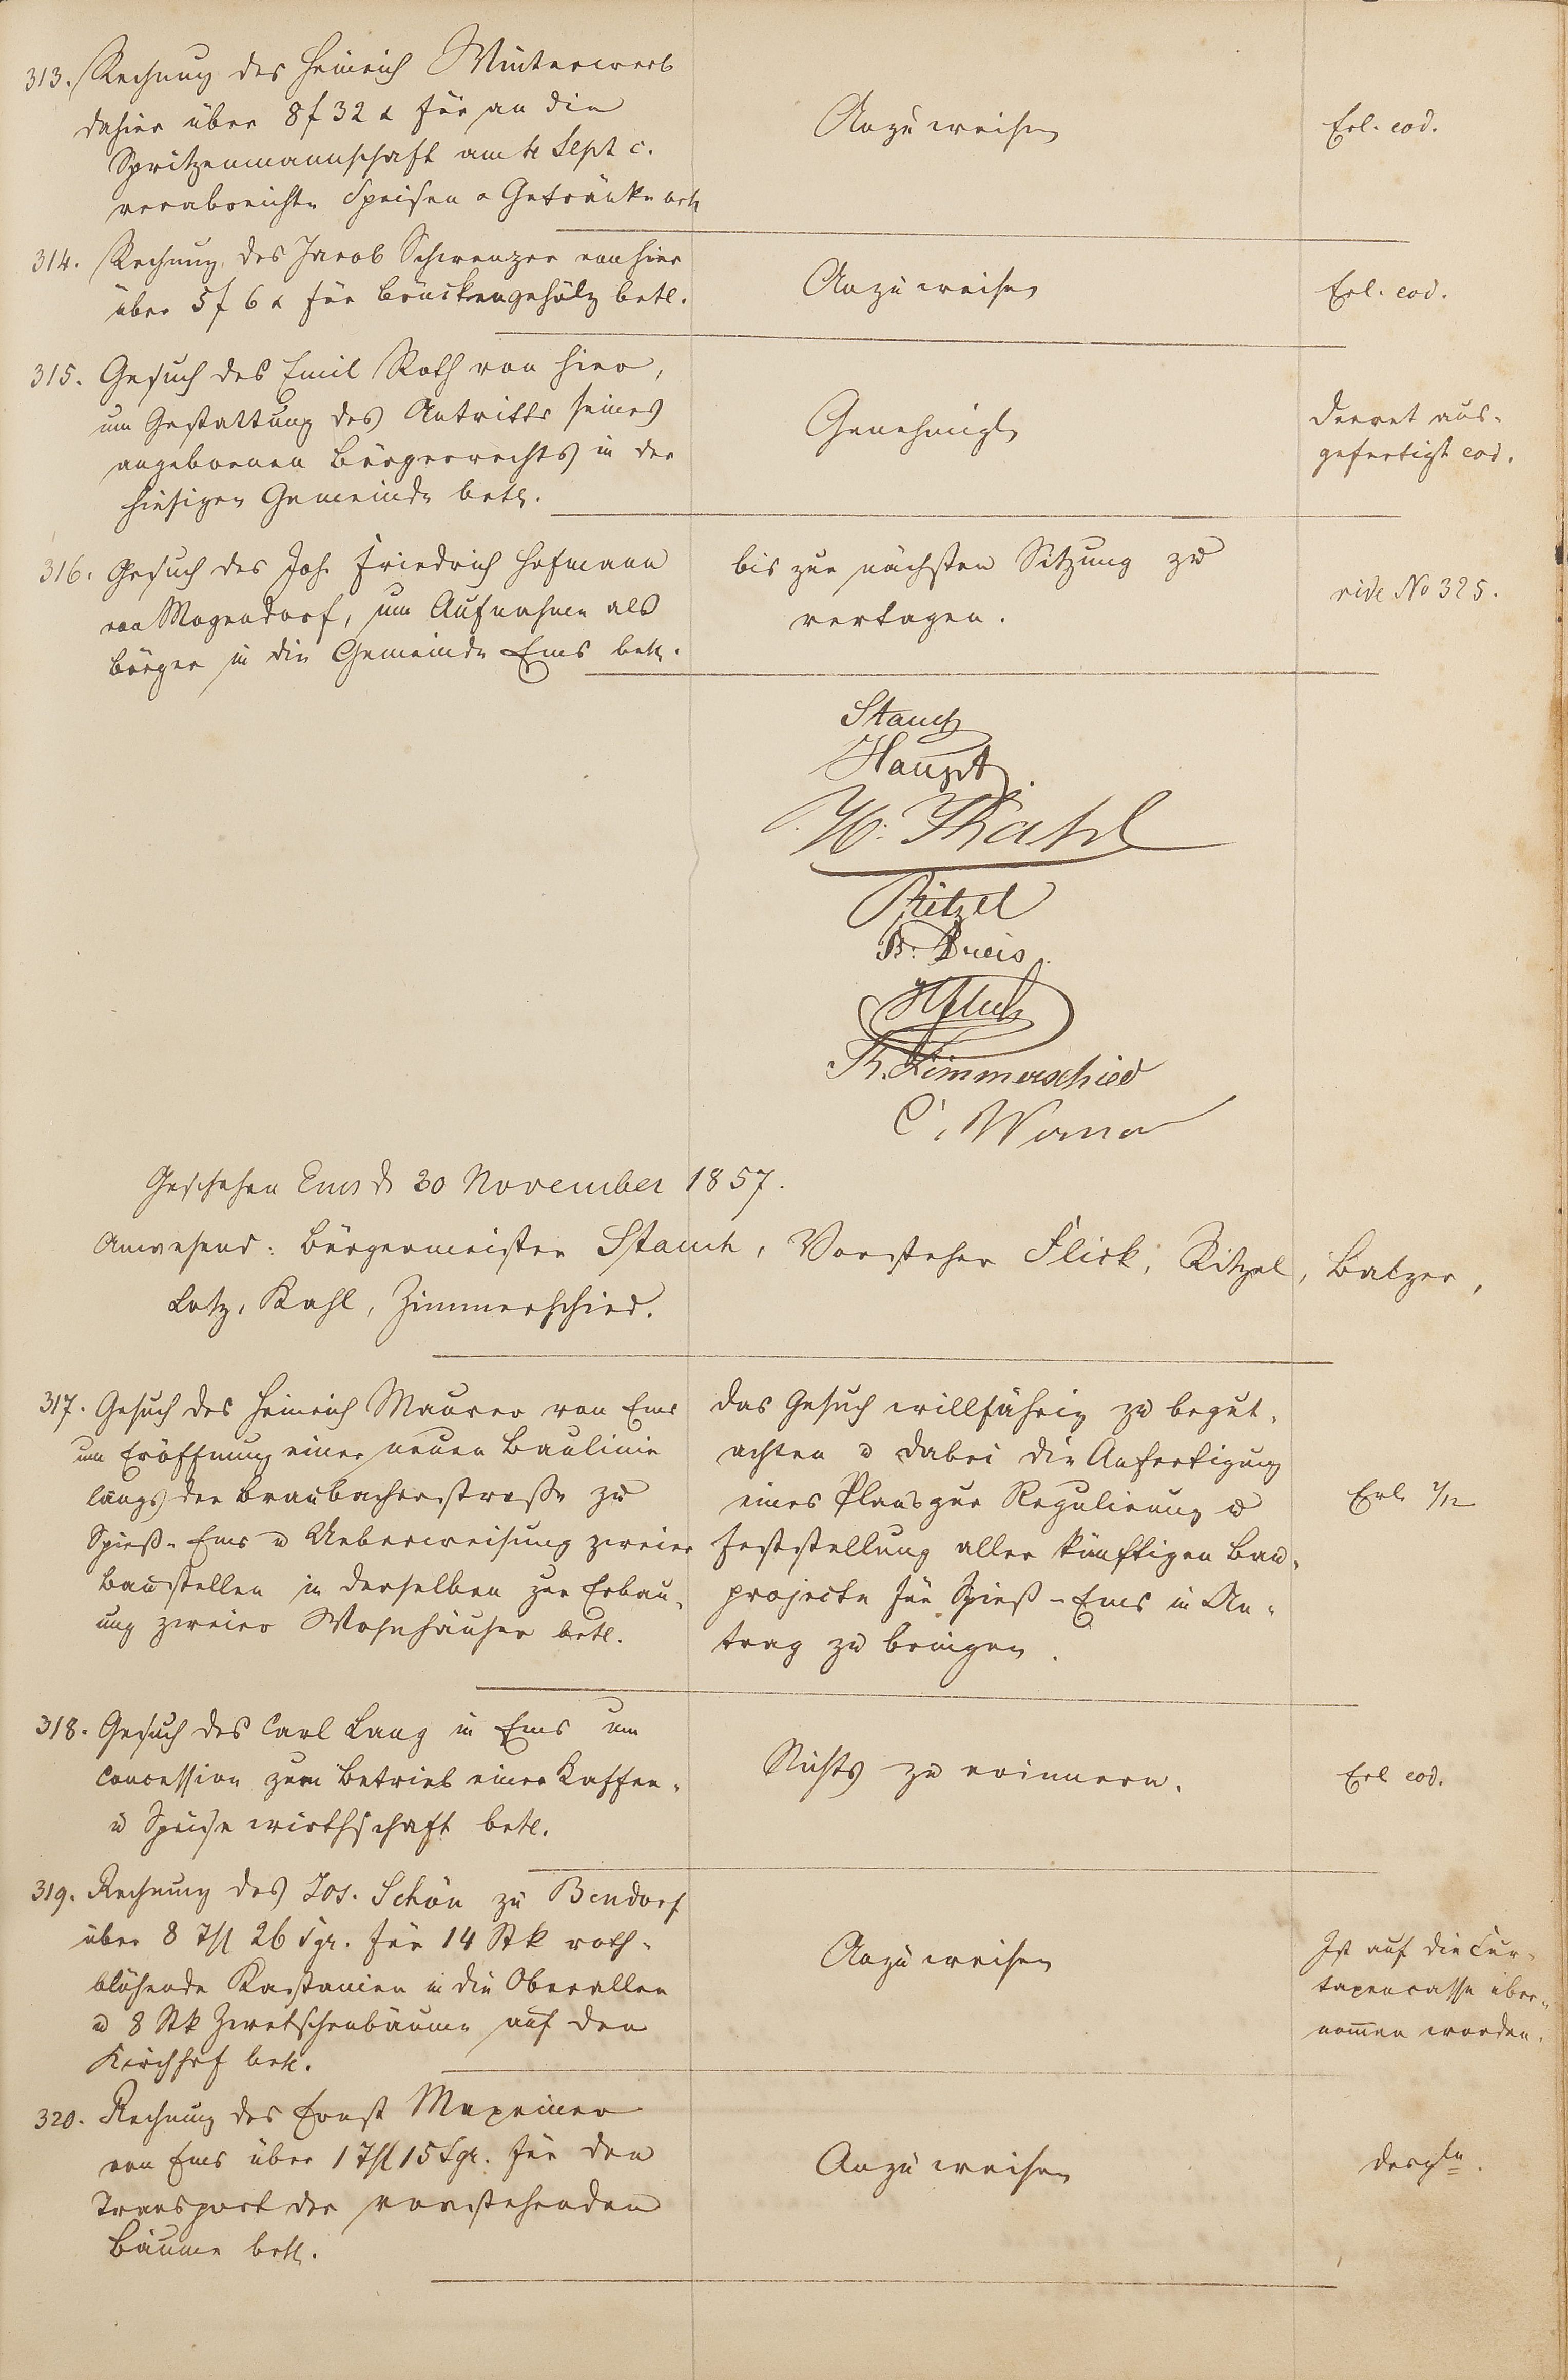 313. Rechnung des Heinrich Winterwerb
dahier über 8 f 32 x für an die
Spritzenmannschaft am Sept c.
verabreichte Speisen & Getränke betr.
Anzuweisen
Erl. eod.
314. Rechnung des Jacob Schwenzer von hier
über 5 f 6 x für Brückengehölz betr.
Anzuweisen
Erl. eod.
315. Gesuch des Emil Roth von hier,
um Gestattung des Antritts seines
angebornen Bürgerrechts in der
hiesigen Gemeinde betr.
Genehmigt
Decret aus-
gefertigt eod.
316. Gesuch des Joh. Friedrich Hofmann
von Mogendorf, um Aufnahme als
Bürger in die Gemeinde Ems betr.
bis zur nächsten Sitzung zu
vertagen.
vide No 325.
Stauch
Haupt
W. Kahl
Ritzel
B. Dreis
Th. Zimmerschied
C. Werner
Geschehen Ems d. 30 November 1857.
Anwesend: Bürgermeister Stauch, Vorsteher Flick, Ritzel, Balzer,
Lotz, Kahl, Zimmerschied.
317. Gesuch des Heinrich Maurer von Ems
um Eröffnung einer neuen Baulinie
längs der Braubacherstraße zu
Spieß-Ems u Ueberweisung zweier
Baustellen in derselben zur Erbau-
ung zweier Wohnhäuser betr.
das Gesuch willfährig zu begut-
achten u dabei die Anfertigung
eines Plans zur Regulirung u
Feststellung aller künftigen Bau-
projecte für Spieß-Ems in An-
trag zu bringen.
Erl. 1/12
318. Gesuch des Carl Lang in Ems um
Concession zum Betrieb einer Kaffee-
u Speisewirthschaft betr.
Nichts zu erinnern.
Erl eod.
319. Rechnung des Jos. Schön zu Bendorf
über 8 Thl 26 Sgr. für 14 Stk roth-
blühende Kastanien in die Oberallee
u 8 Stk Zwetschenbäume auf den
Kirchhof betr.
Anzuweisen
Ist auf die Cur-
taxencasse über-
nom̄en worden.
320. Rechnung des Ernst Maxeiner
von Ems über 1 Thl 15 Sgr. für den
Transport der vorstehenden
Bäume betr.
Anzuweisen
desgln.